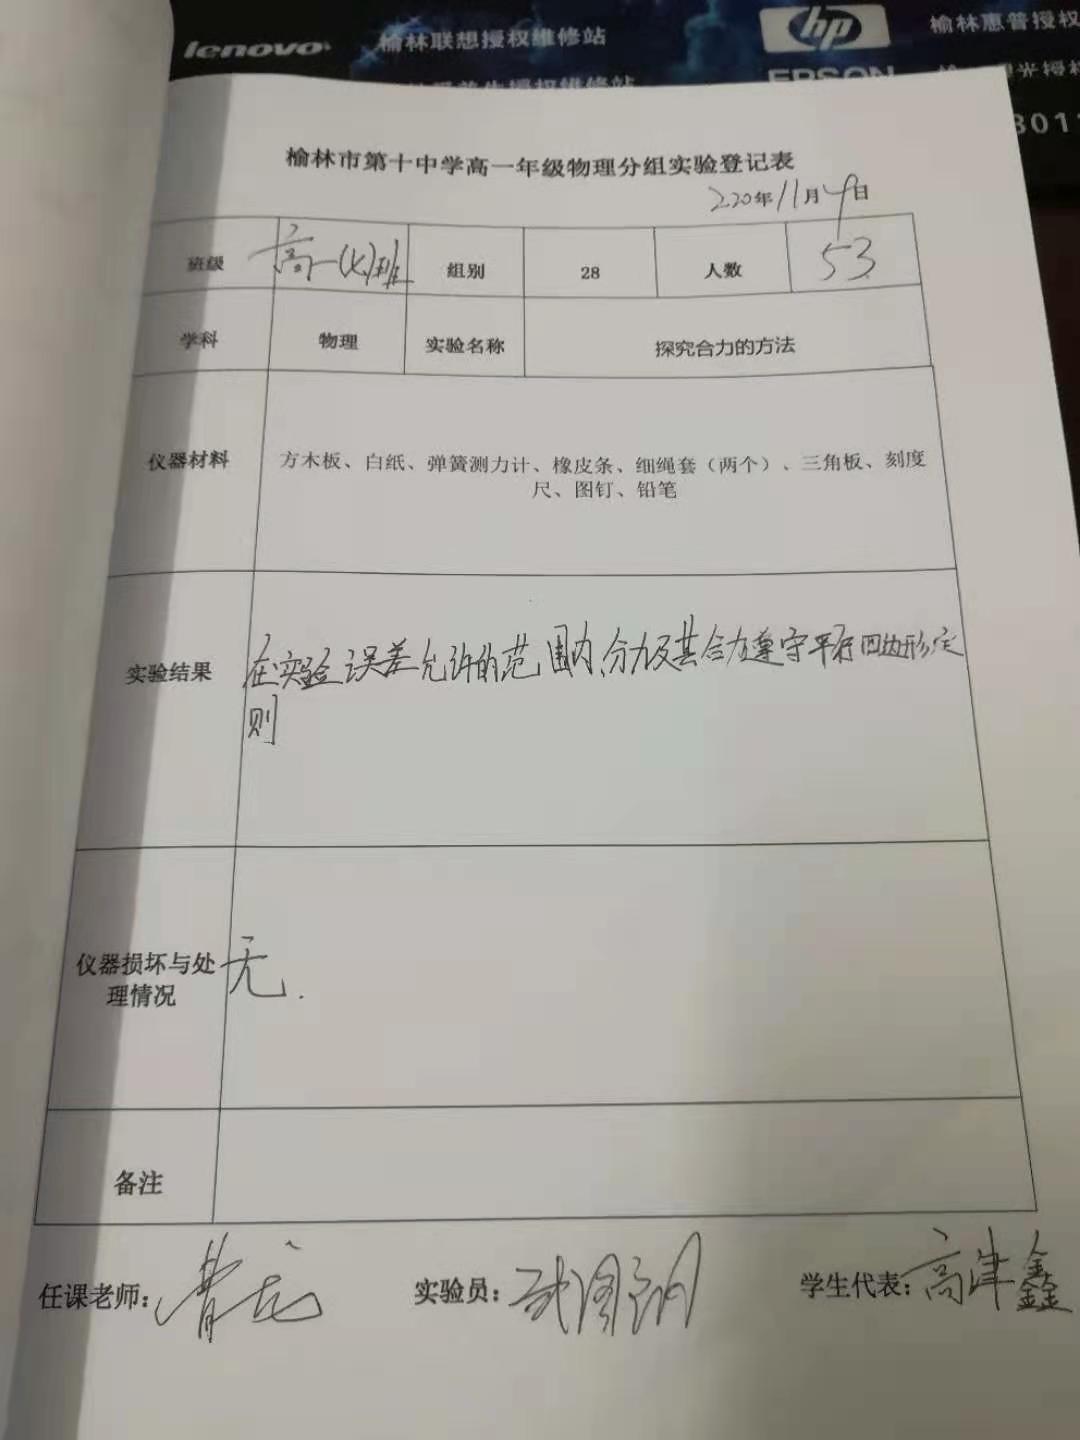 lenovo 榆林联想授权维修站
hp 榆林惠普授权
授权维修站
EPSON 光授权
8011
榆林市第十中学高一年级物理分组实验登记表
2020年11月9日
班级 高一(七)班 组别 28 人数 53
学科 物理 实验名称 探究合力的方法
仪器材料 方木板、白纸、弹簧测力计、橡皮条、细绳套（两个）、三角板、刻度
尺、图钉、铅笔
实验结果 在实验误差允许的范围内,分力及其合力遵守平行四边形定
则
仪器损坏与处
理情况 无.
备注
任课老师: 实验员: 学生代表: 高津鑫